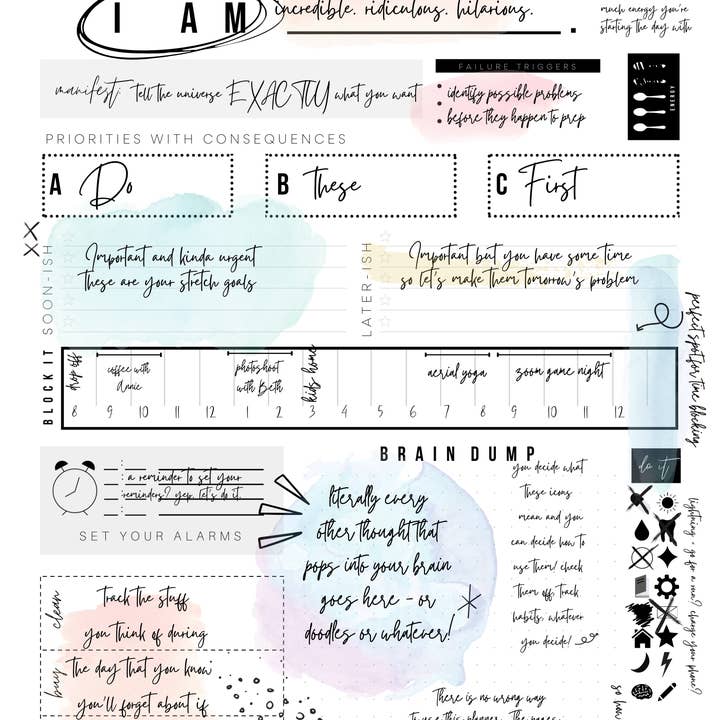 I AM incredible. ridiculous. hilarious.
much energy you're
starting the day with
manifest: Tell the universe EXACTLY what you want
FAILURE TRIGGERS
identify possible problems
before they happen to prep
ENERGY
PRIORITIES WITH CONSEQUENCES
A Do
B These
C First
SOON-ISH
Important and kinda urgent
These are your stretch goals
LATER-ISH
Important but you have some time
so let's make them tomorrow's problem
perfect spot for time blocking
BLOCK IT
drop off
coffee with
Annie
photoshoot
with Beth
kids home
aerial yoga
zoom game night
8 9 10 11 12 1 2 3 4 5 6 7 8 9 10 11 12
a reminder to set your
reminders? yep. let's do it.
SET YOUR ALARMS
BRAIN DUMP
literally every
other thought that
pops into your brain
goes here - or
doodles or whatever!
you decide what
these icons
mean and you
can decide how to
use them! check
them off, track
habits, whatever
you decide!
do it
lightning = go for a run? charge your phone?
clean
Track the stuff
you think of during
buy
the day that you know
you'll forget about if
There is no wrong way
to use this planner. The pages
so how